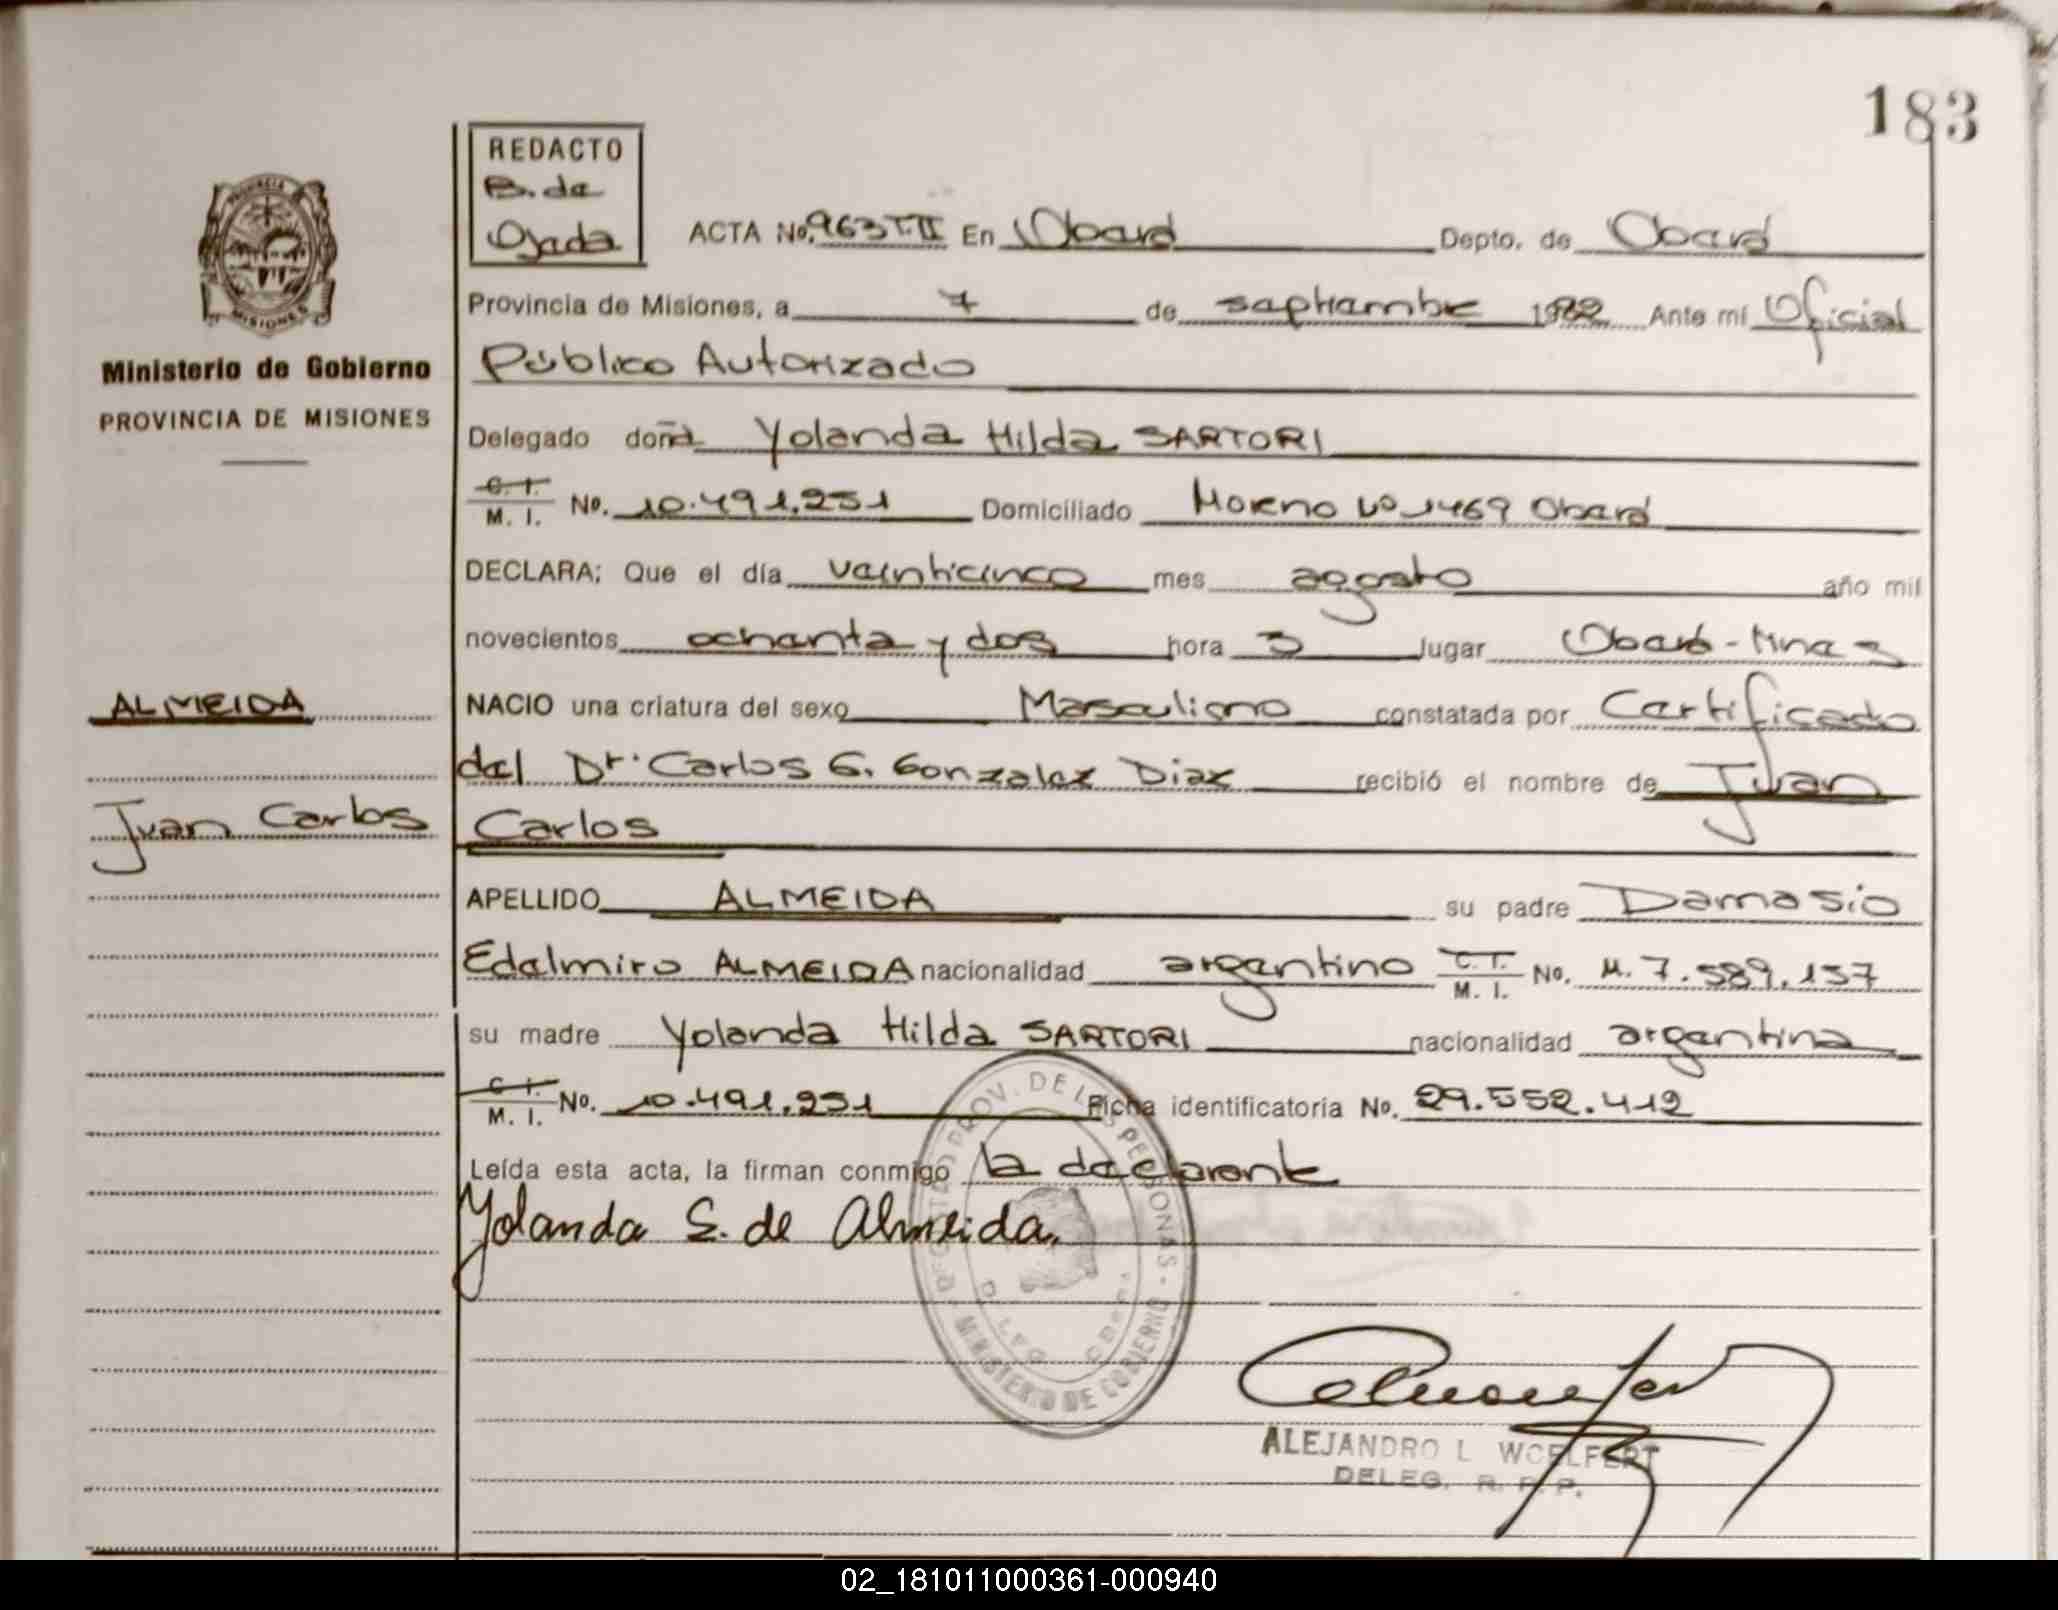 183
REDACTO
B. de
Ojeda
ACTA No. 963 T.II En Oberá Depto. de Oberá
Provincia de Misiones, a 7 de septiembre 1982 Ante mí Oficial
Público Autorizado
Ministerio de Gobierno
PROVINCIA DE MISIONES
Delegado doña Yolanda Hilda SARTORI
C. I.
M. I. No. 10.491.251 Domiciliado Moreno Nº 1469 Oberá
DECLARA: Que el día veinticinco mes agosto año mil
novecientos ochenta y dos hora 3 lugar Oberá - Mnes
ALMEIDA
NACIO una criatura del sexo Masculino constatada por Certificado
del Dr. Carlos G. Gonzalez Diaz recibió el nombre de Juan
Juan Carlos
Carlos
APELLIDO ALMEIDA su padre Damasio
Edelmiro ALMEIDA nacionalidad argentino C. I. M. I. No. M. 7.589.157
su madre Yolanda Hilda SARTORI nacionalidad argentina
C. I.
M. I. No. 10.491.251 Ficha identificatoria No. 29.552.412
Leída esta acta, la firman conmigo la declarante
Yolanda S. de Almeida.
REGISTRO PROV. DE LAS PERSONAS - MINISTERIO DE GOBIERNO
ALEJANDRO L WOELFERT
DELEG. R. P. P.
MISIONES
02_181011000361-000940